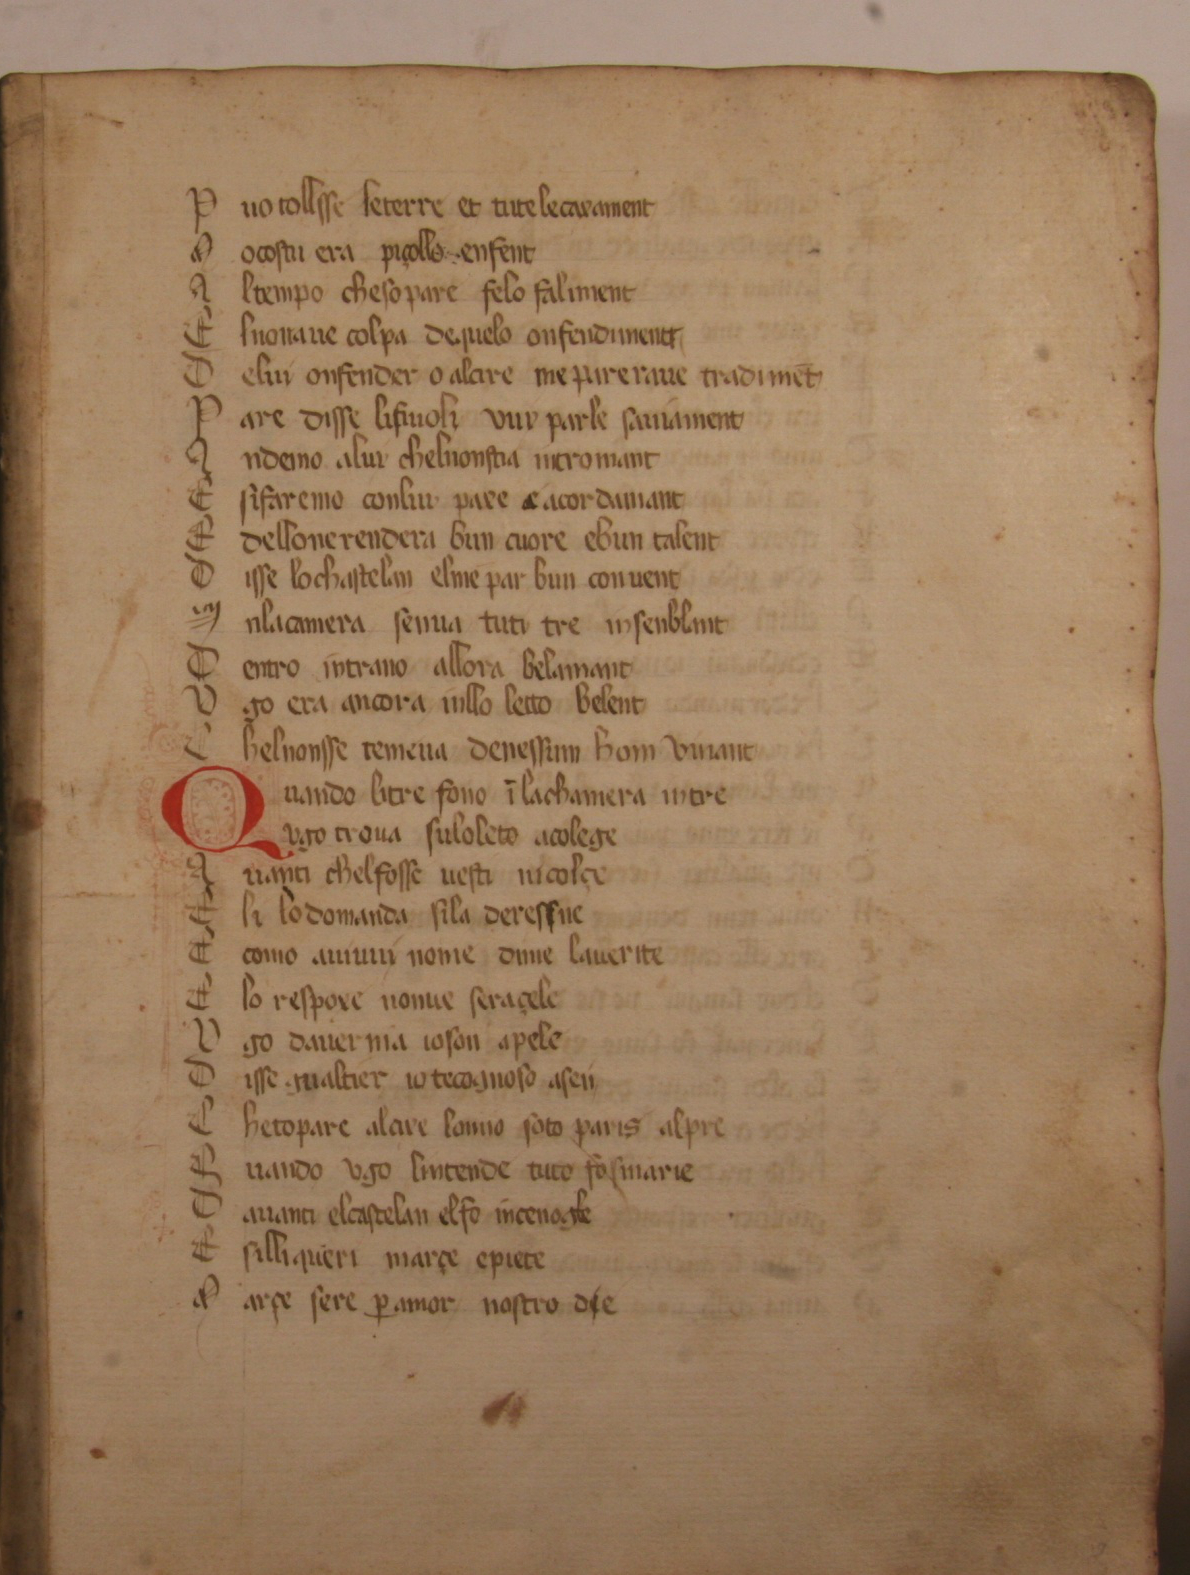 P uo tollsse le terre et tute le caxament
M ocostu era piçollo enfent
A l tempo che so pare felo faliment
E l nonaue colpa de quelo onfendiment
D e lui onfender o alcire me pareraue tradimēt
P are disse li fiuoli vui parle sauiament
A ndemo a lui chel non stia intromant
E si faremo con lui paxe e acordamant
E dello ne rendera bun cuore e bun talent
D isse lo chastelan el me par bun conuent
In la camera sen ua tuti tre insenblant
D entro intrano allora belamant
V go era ancora in llo letto belent
C hel nonsse temeua de nessun hom viuant
Quando li tre fono ī la chamera intre
vgo troua su lo leto acolege
A uanti chel fosse uesti ni colçe
E li lo domanda si la deresne
E como aui uui nome dime la uerite
E lo respoxe non ue sera çele
V go dauernia io son apele
D isse gualtier io te cognoso aseii
C he to pare alcixe lonno soto paris al pre
Quando vgo lintende tuto fo smarie
D auanti el castelan el fo incenogle
E silli queri marçe e piete
M arçe sere p amor nostro die